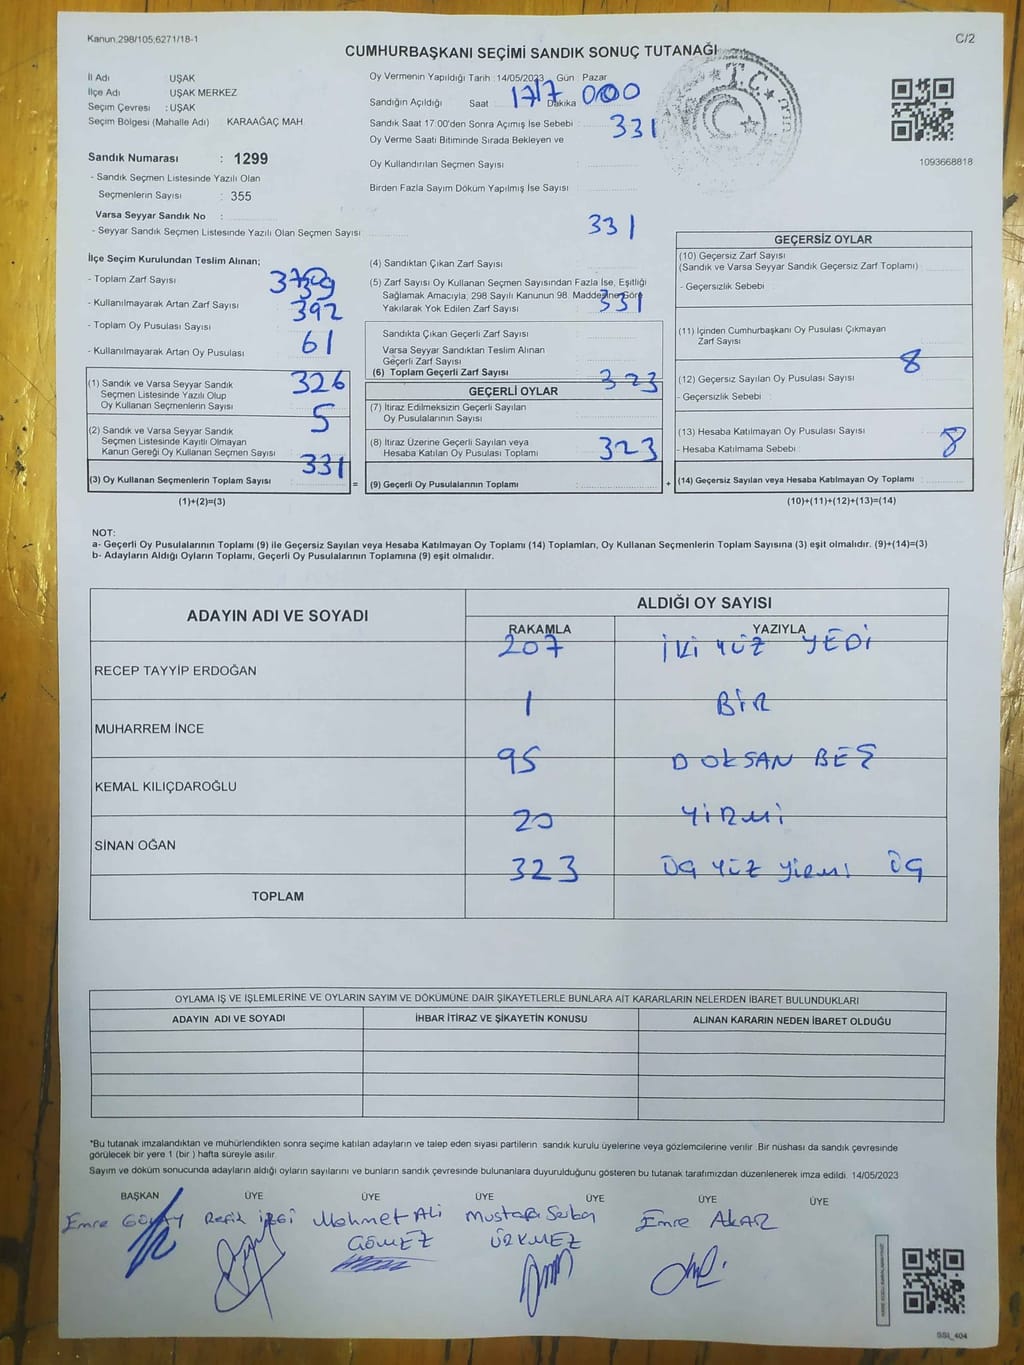 Kanun 298/105;6271/18-1
C/2
CUMHURBAŞKANI SEÇİMİ SANDIK SONUÇ TUTANAĞI
İl Adı : UŞAK
İlçe Adı : UŞAK MERKEZ
Seçim Çevresi : UŞAK
Seçim Bölgesi (Mahalle Adı) KARAAĞAÇ MAH.
Sandık Numarası : 1299
- Sandık Seçmen Listesinde Yazılı Olan
Seçmenlerin Sayısı : 355
Varsa Seyyar Sandık No :
- Seyyar Sandık Seçmen Listesinde Yazılı Olan Seçmen Sayısı
Oy Vermenin Yapıldığı Tarih :14/05/2023 Gün : Pazar
Sandığın Açıldığı Saat 17 Dakika 00
Sandık Saat 17.00'den Sonra Açımış İse Sebebi :
331
Oy Verme Saati Bitiminde Sırada Bekleyen ve
Oy Kullandırılan Seçmen Sayısı :
Birden Fazla Sayım Döküm Yapılmış İse Sayısı :
T.C.
1093668818
331
İlçe Seçim Kurulundan Teslim Alınan;
- Toplam Zarf Sayısı
- Kullanılmayarak Artan Zarf Sayısı 392
- Toplam Oy Pusulası Sayısı
- Kullanılmayarak Artan Oy Pusulası 61
(1) Sandık ve Varsa Seyyar Sandık 326
Seçmen Listesinde Yazılı Olup
Oy Kullanan Seçmenlerin Sayısı
(2) Sandık ve Varsa Seyyar Sandık 5
Seçmen Listesinde Kayıtlı Olmayan
Kanun Gereği Oy Kullanan Seçmen Sayısı
331
(3) Oy Kullanan Seçmenlerin Toplam Sayısı =
(1)+(2)=(3)
(4) Sandıktan Çıkan Zarf Sayısı
(5) Zarf Sayısı Oy Kullanan Seçmen Sayısından Fazla İse, Eşitliği
Sağlamak Amacıyla, 298 Sayılı Kanunun 98. Maddesine Göre
Yakılarak Yok Edilen Zarf Sayısı 331
Sandıkta Çıkan Geçerli Zarf Sayısı :
Varsa Seyyar Sandıktan Teslim Alınan
Geçerli Zarf Sayısı
(6) Toplam Geçerli Zarf Sayısı
323
GEÇERLİ OYLAR
(7) İtiraz Edilmeksizin Geçerli Sayılan
Oy Pusulalarının Sayısı :
(8) İtiraz Üzerine Geçerli Sayılan veya
Hesaba Katılan Oy Pusulası Toplamı 323
(9) Geçerli Oy Pusulalarının Toplamı : +
GEÇERSİZ OYLAR
(10) Geçersiz Zarf Sayısı
(Sandık ve Varsa Seyyar Sandık Geçersiz Zarf Toplamı)
- Geçersizlik Sebebi :
(11) İçinden Cumhurbaşkanı Oy Pusulası Çıkmayan
Zarf Sayısı
8
(12) Geçersiz Sayılan Oy Pusulası Sayısı :
- Geçersizlik Sebebi :
(13) Hesaba Katılmayan Oy Pusulası Sayısı
- Hesaba Katılmama Sebebi : 8
(14) Geçersiz Sayılan veya Hesaba Katılmayan Oy Toplamı
(10)+(11)+(12)+(13)=(14)
NOT:
a- Geçerli Oy Pusulalarının Toplamı (9) ile Geçersiz Sayılan veya Hesaba Katılmayan Oy Toplamı (14) Toplamları, Oy Kullanan Seçmenlerin Toplam Sayısına (3) eşit olmalıdır. (9)+(14)=(3)
b- Adayların Aldığı Oyların Toplamı, Geçerli Oy Pusulalarının Toplamına (9) eşit olmalıdır.
ADAYIN ADI VE SOYADI ALDIĞI OY SAYISI
RAKAMLA YAZIYLA
207 İKİ YÜZ YEDİ
RECEP TAYYİP ERDOĞAN
1 BİR
MUHARREM İNCE
95 DOKSAN BEŞ
KEMAL KILIÇDAROĞLU
20 YİRMİ
SİNAN OĞAN
323 ÜÇ YÜZ YİRMİ ÜÇ
TOPLAM
OYLAMA İŞ VE İŞLEMLERİNE VE OYLARIN SAYIM VE DÖKÜMÜNE DAİR ŞİKAYETLERLE BUNLARA AİT KARARLARIN NELERDEN İBARET BULUNDUKLARI
ADAYIN ADI VE SOYADI İHBAR İTİRAZ VE ŞİKAYETİN KONUSU ALINAN KARARIN NEDEN İBARET OLDUĞU
*Bu tutanak imzalandıktan ve mühürlendikten sonra seçime katılan adayların ve talep eden siyasi partilerin sandık kurulu üyelerine veya gözlemcilerine verilir. Bir nüshası da sandık çevresinde
görülecek bir yere 1 (bir ) hafta süreyle asılır.
Sayım ve döküm sonucunda adayların aldığı oyların sayılarını ve bunların sandık çevresinde bulunanlara duyurulduğunu gösteren bu tutanak tarafımızdan düzenlenerek imza edildi. 14/05/2023
BAŞKAN ÜYE ÜYE ÜYE ÜYE ÜYE ÜYE
Emre Refik Mehmet Ali Mustafa Emre AKAR
GÖMEZ ÜRKMEZ
SSI_404